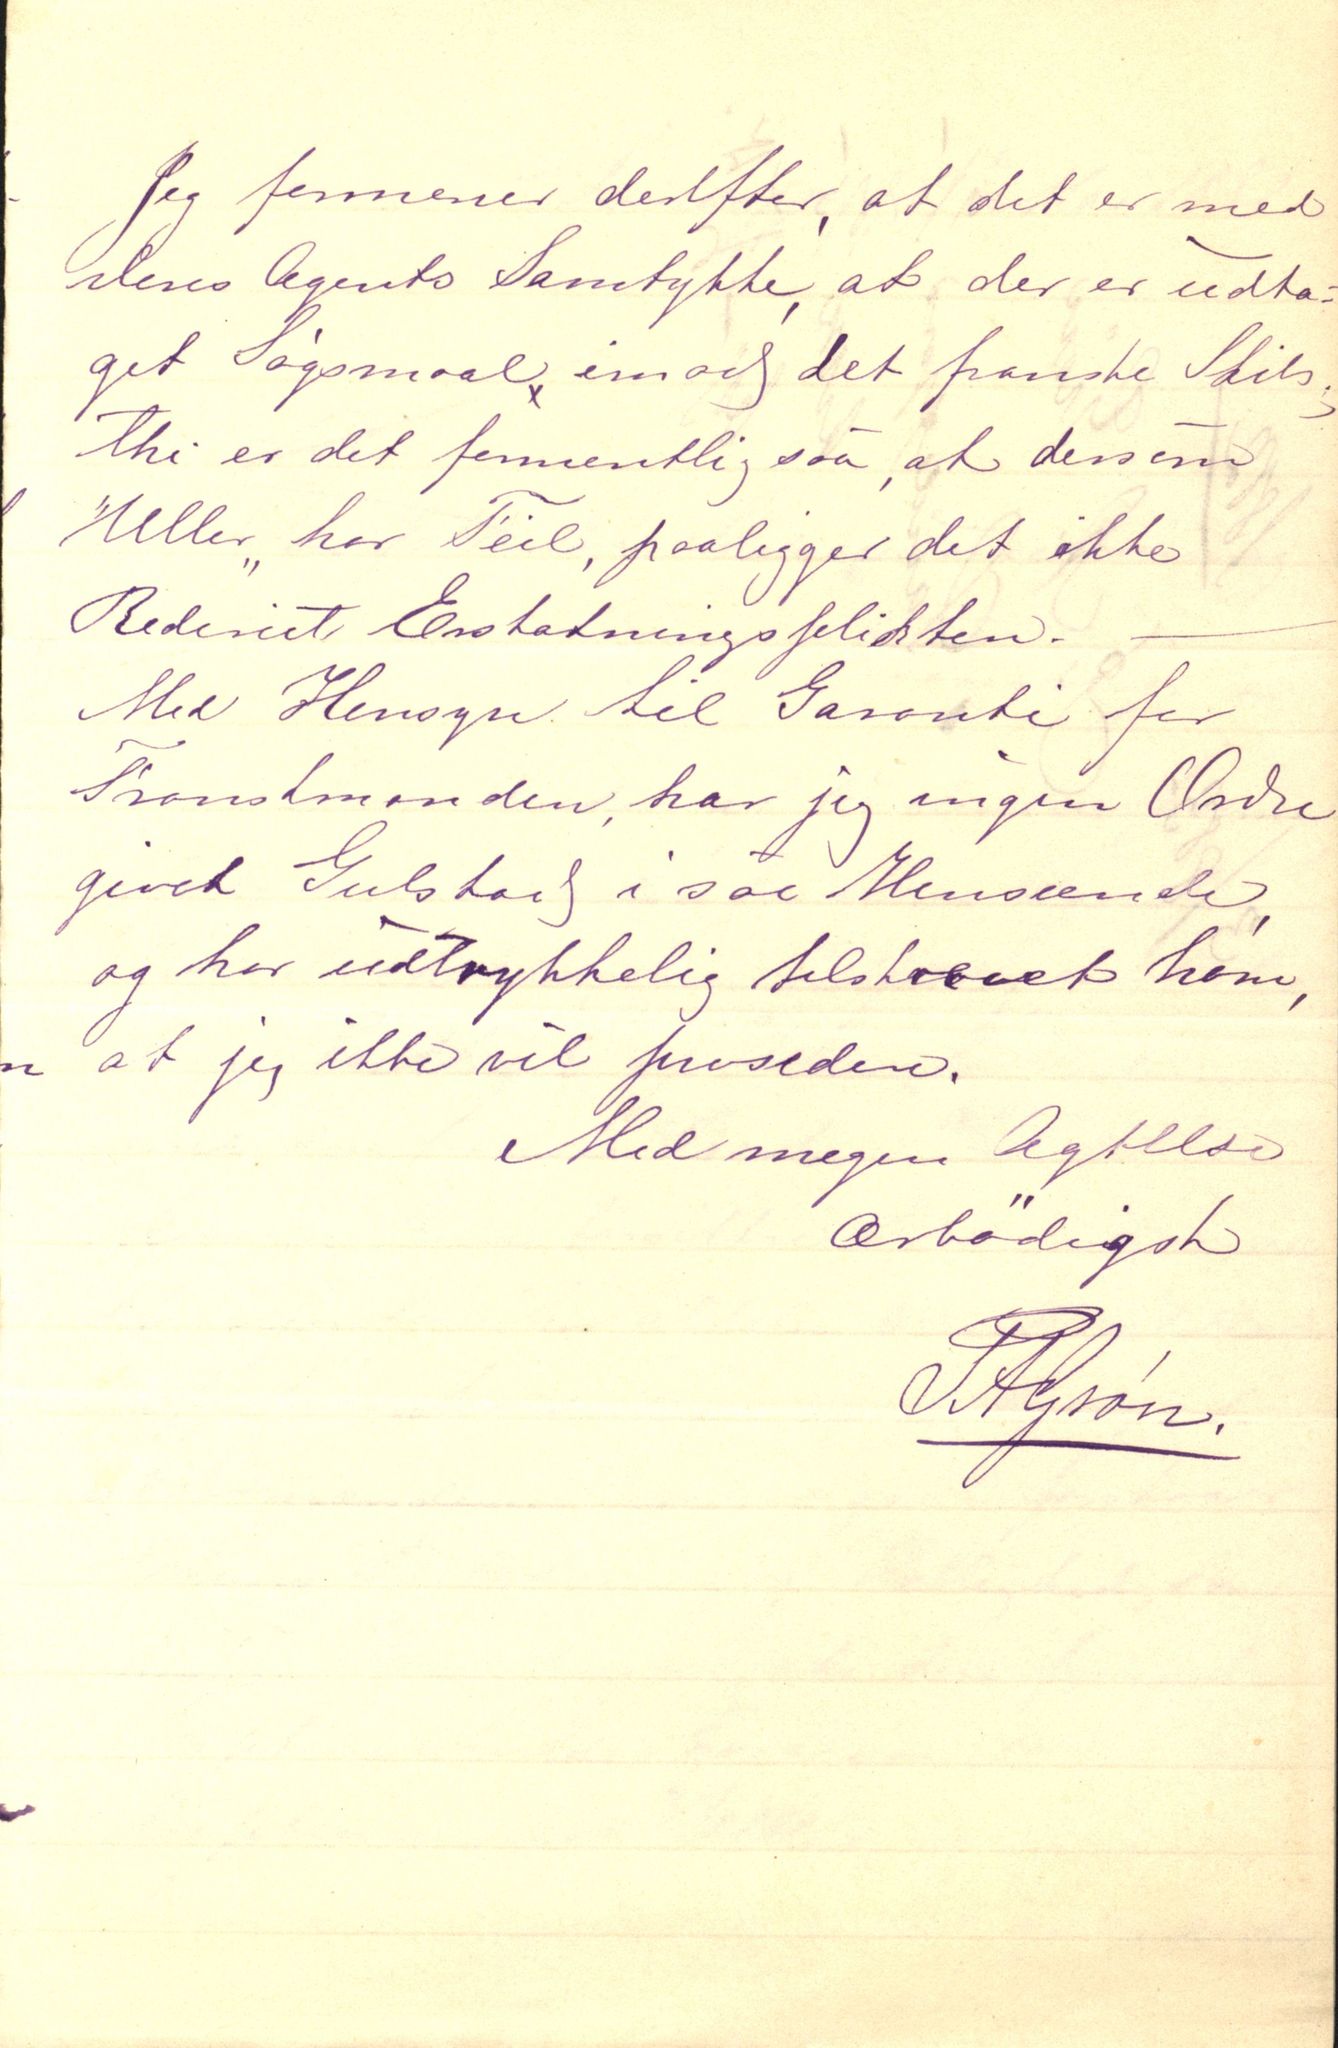 Jeg formener derefter, at det er med
deres Agents Samtykke, at der er udta-
get Søgsmaal, imod det franske Skib,
thi er det formentlig saa, at dersom
"Uller" har Feil, paaligger det ikke
Rederiet Erstatningspligten. —
Med Hensyn til Garanti for
Franskmanden, har jeg ingen Ordre
givet Gulstad i saa Henseende,
og har udtrykkelig tilskrevet ham,
at jeg ikke vil prosedere.
Med megen Agtelse
Ærbödigst